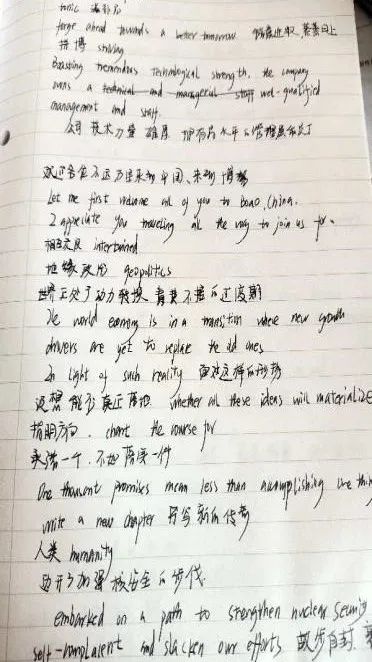 tonic 滋补品
forge ahead towards a better tomorrow 锐意进取、蒸蒸日上
拼博 striving
Boasting tremendous technological strength, the company
owns a technical and managerial staff wel-qualified
management and staff.
公司技术力量雄厚 拥有高水平的管理层和员工
欢迎各位不远万里来到中国、来到博鳌
Let me first welcome all of you to boao, China.
I appreciate you traveling all the way to join us for.
相互交织 intertwined
地缘政治 geopolitics
世界正处于动力转换 青黄不接的过渡期
The world economy is in a transition where new growth
drivers are yet to replace the old ones
In light of such reality 面对这样的形势
设想能否真正落地 whether all these ideas will materialize
指明方向. chart the course for
承诺一千,不如落实一件
One thousant promises mean less than accomplishing one thing
write a new chapter 书写新的传奇
人类 humanity
迈开了加强核安全的步伐
embarked on a path to strengthen nuclear security
self-complacent and slacken our efforts 故步自封